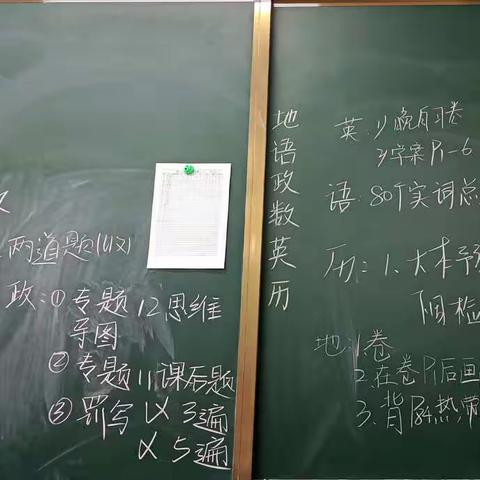 两道题(11文)
政:① 专题12思维
导图
② 专题11课后题
③ 罚写 以3遍
以5遍
地语政数英历
英:1)晚自习卷
2)学案P1-6
语:80个实词总
历:1.大本预
地:1.卷
2.在卷P1后画
3.背P84热带